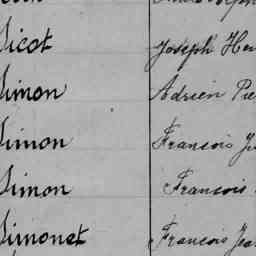 Sicot Joseph Hen
Simon Adrien Pie
Simon François Je
Simon François
Simonet François Jean